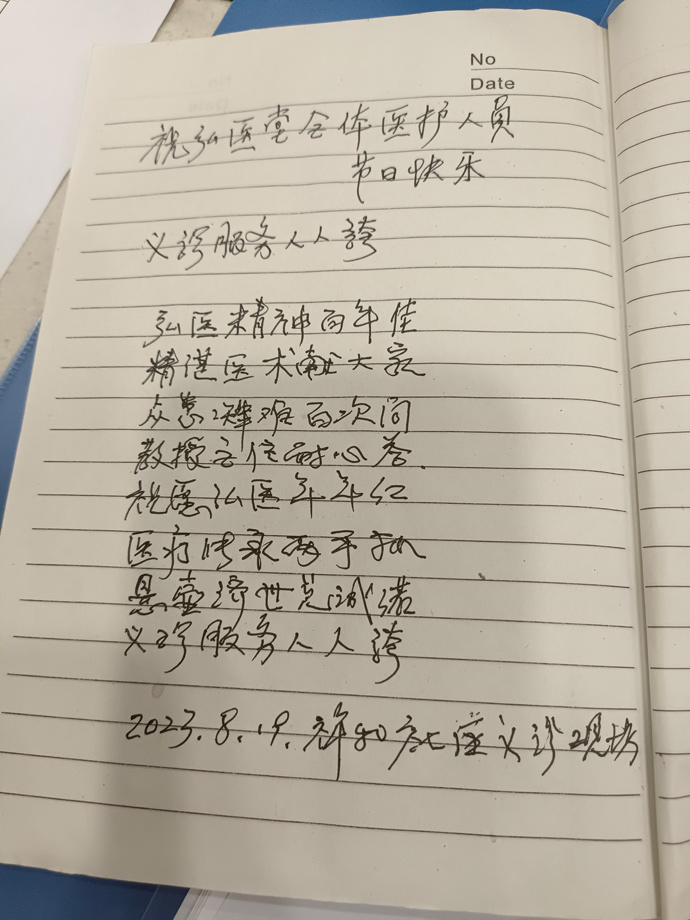 No
Date
祝弘医堂全体医护人员
节日快乐
义诊服务人人誇
弘医精神百年佳
精湛医术献大家
众患疑难百次问
教授主任耐心答
祝愿弘医年年红
医疗传承两手抓
悬壶济世克诚诺
义诊服务人人誇
2023.8.19. 座义诊现场